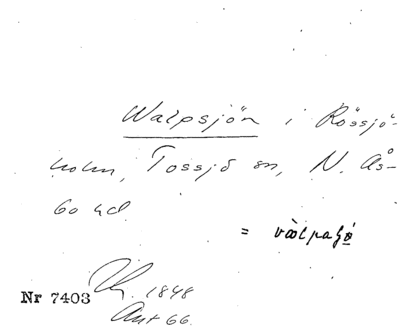 Walpsjön i Rössjö-
holm, Tossjö sn, N. Ås-
bo hd.
= välpaʃö
Nr 7403
1848
Ant 66.